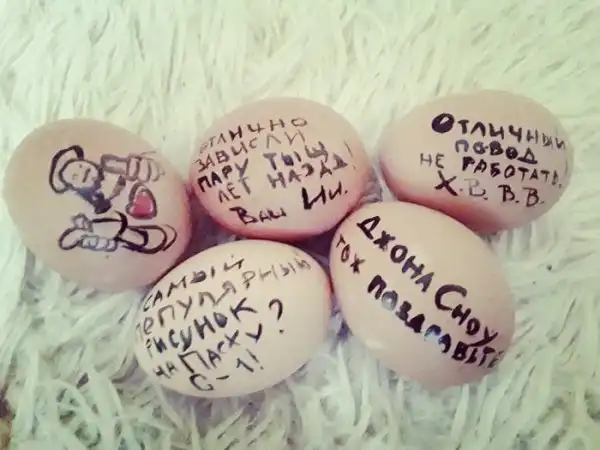 ОТЛИЧНО
ЗАВИСЛИ
ПАРУ ТЫЩ
ЛЕТ НАЗАД!
Ваш Ии.
ОТЛИЧНЫЙ
ПОВОД
НЕ РАБОТАТЬ!
Х.В. В.В.
САМЫЙ
ПОПУЛЯРНЫЙ
РИСУНОК
НА ПАСХУ?
С-1!
ДЖОНА СНОУ
ТОЖ ПОЗДРАВЬТЕ